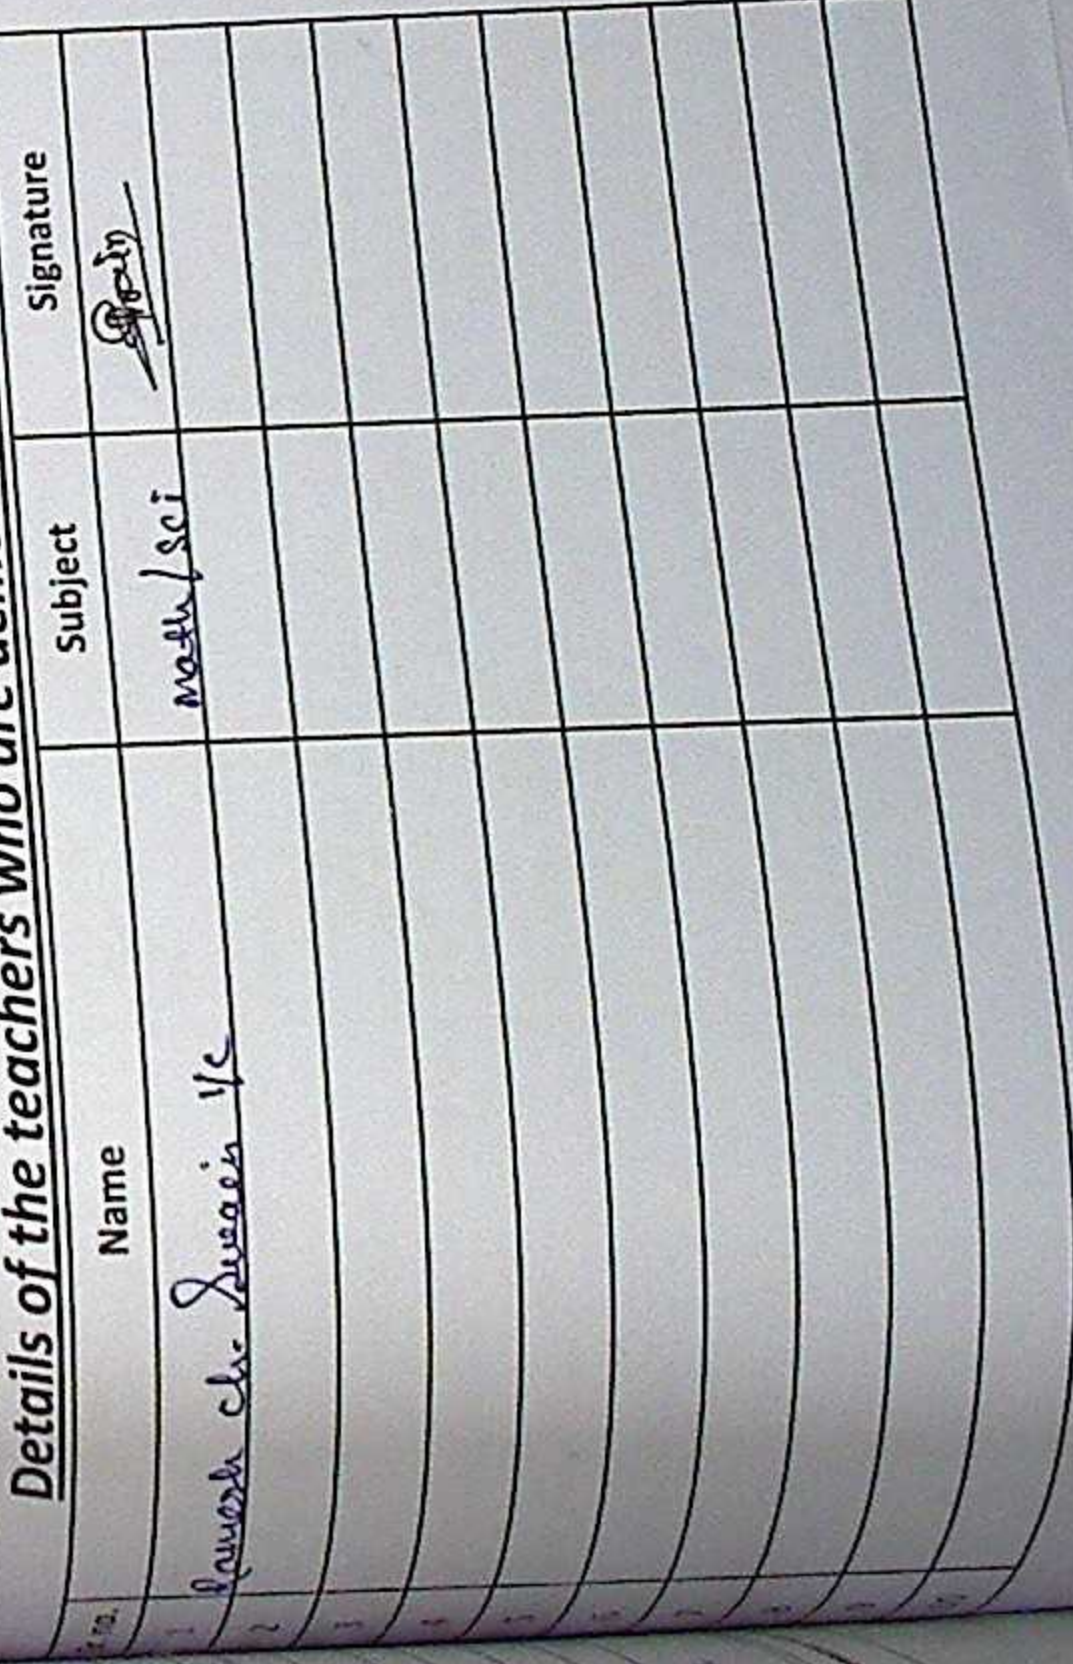 Details of the teachers who are
Sl no. Name Subject Signature
1 Ramesh Ch. Swain I/C Math/Sci
2
3
4
5
6
7
8
9
10